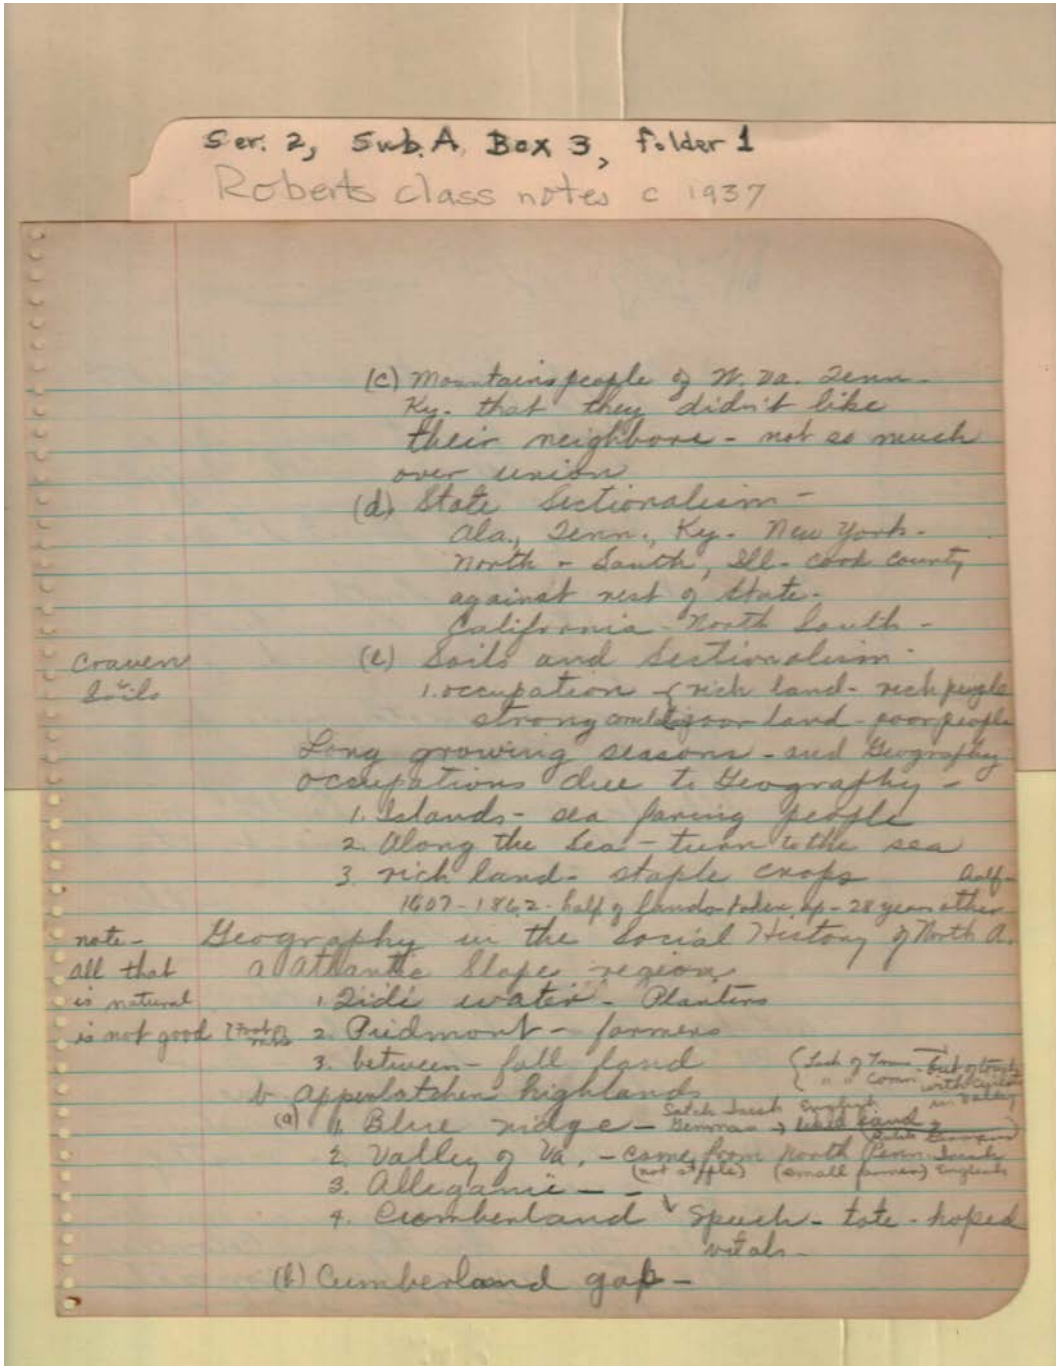 Ser. 2, Sub. A, Box 3, folder 1
Roberts class notes c 1937
(c) Mountains people of W. Va. Tenn-
Ky. that they didn't like
their neighbors - not so much
over union
(d) State Sectionalism -
Ala., Tenn., Ky. New York-
North - South, Ill - cook county
against rest of State-
California - North South -
Craven
Soils
(e) Soils and Sectionalism-
1. occupation { rich land - rich people
strong poor land - poor people
Long growing seasons - and Geography
occupations due to Geography -
1. Islands - sea faring people
2. Along the Sea - turn to the sea
3. rich land - staple crops half-
1607-1862 - half of lands taken up - 28 years other
note-
all that
is natural
is not good
Geography in the Social History of North A.
a Atlantic Slope region
1. Tide water - Planters
2. Piedmont - farmers
3. between - fall land
{ Lack of Trans -
" " Comm
but of touch
in valley
b Appalatchen highlands
Scotch Irish English
(a) 1. Blue ridge - Germans →
2. Valley of Va. - came from North Penn. Irish
(small farmer) English
3. Alleganie - -
4. Cumberland Speech - tote - hoped
vitals -
(b) Cumberland gap -